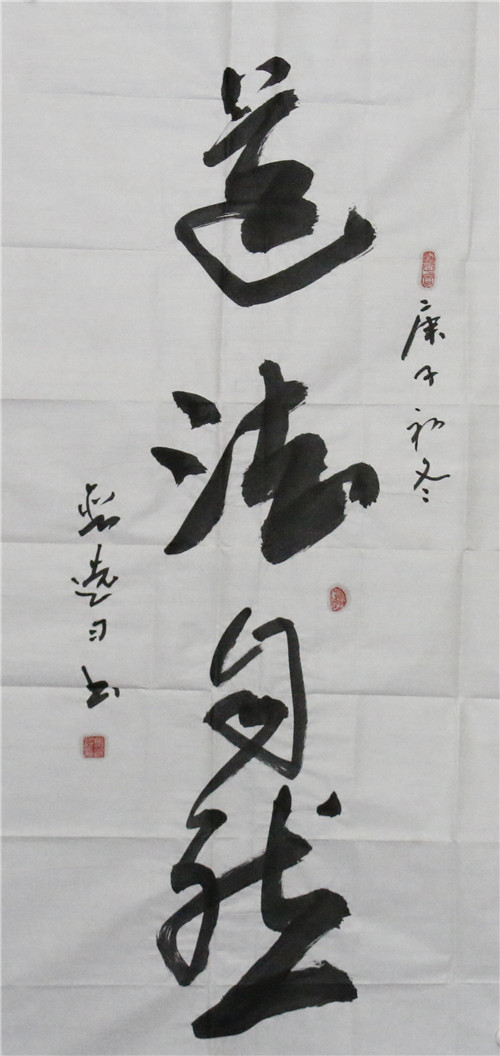 庚子初冬
道法自然